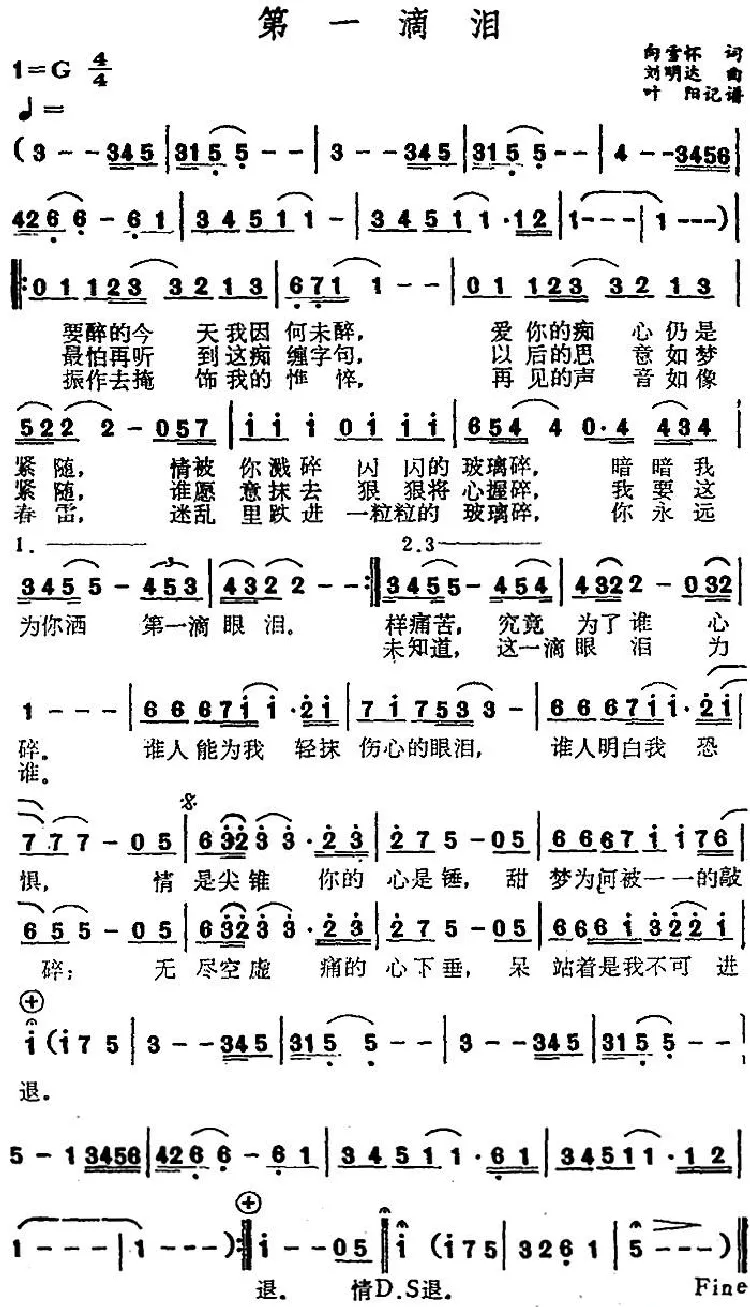 第一滴泪
1=G 4/4
向雪怀 词
刘明达 曲
叶 阳记谱
♩=
(3 - - 345 | 3155 5 - - | 3 - - 345 | 3155 5 - - | 4 - - 3456 |
4266 6 - 61 | 34511 1 - | 34511 1·12 | 1 - - - | 1 - - -) |
‖: 011123 3213 | 671 1 - - | 011123 3213 |
要醉的今 天我因 何未醉, 爱你的痴 心仍是
最怕再听 到这痴 缠字句, 以后的思 意如梦
振作去掩 饰我的 憔 悴, 再见的声 音如像
522 2 - 057 | i i i 0 i i | 654 4 0·4 434 |
紧随, 情被 你溅碎 闪闪的 玻璃碎, 暗暗我
紧随, 谁愿 意抹去 狠狠将 心握碎, 我要这
春雷, 迷乱 里跌进 一粒粒的 玻璃碎, 你永远
1. 2.3
3455 5 - 453 | 432 2 - - :‖ 3455 5 - 454 | 432 2 - 032 |
为你洒 第一滴眼泪。 样痛苦, 究竟 为了谁 心
未知道, 这一滴眼 泪 为
1 - - - | 6667i i·2i | 7i 753 3 - | 6667i i·2i |
碎。 谁人能为我 轻抹 伤心的眼泪, 谁人明白我 恐
谁。
777 - 05 | 6323 3·23 | 275 - 05 | 6667i i76 |
惧, 情 是尖锥 你的 心是锤, 甜 梦为何被一一的敲
655 - 05 | 6323 3·23 | 275 - 05 | 6667i 322i |
碎; 无 尽空虚 痛的 心下垂, 呆 站着是我不可进
i (i75 | 3 - - 345 | 3155 5 - - | 3 - - 345 | 3155 5 - - |
退。
5 - 1 3456 | 4266 6 - 61 | 34511 1·61 | 34511 1·12 |
1 - - - | 1 - - -) :‖ i - - 05 ‖ i (i75 | 3261 | 5 - - -) ‖
退. 情D.S退. Fine